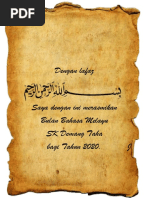 Dengan lafaz
بسم الله الرحمن الرحيم
Saya dengan ini merasmikan
Bulan Bahasa Melayu
SK Demang Taha
bagi Tahun 2020.